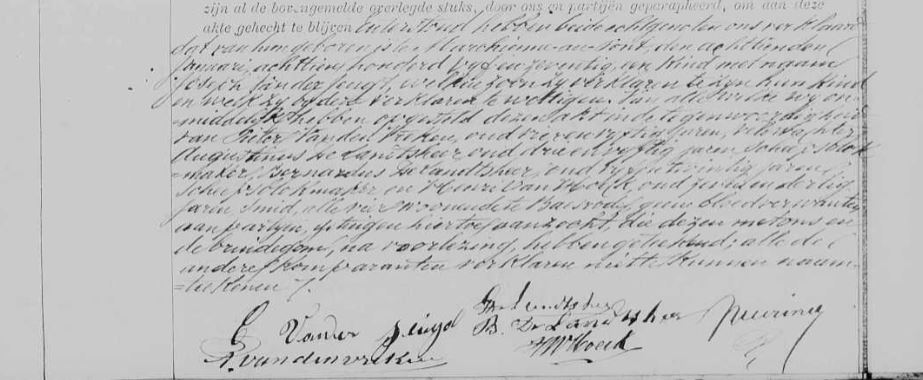 zijn al de bovengemelde overlegde stuks, door ons en partijën geparapheerd, om aan deze
akte gehecht te blijven Enterstond hebben beide echtgenoten ons verklaard
dat van hun geboren is te Marchienne-au-Pont, den achttienden
Januari, achttien honderd vyf en zeventig, een kind met naam
Joseph Vander Jeugt, welken zoon zy verklaren te zyn hun kind
en welk zy by deze verklaren te wettigen. Van alle welke wy on-
middelyk hebben opgesteld dezen akt in de tegenwoordigheid
van Pieter Vanden Vreken, oud vier en vyftig jaren,
Augustinus De Landtsheer, oud drie en vyftig jaren, scheepsblok-
-maker, Bernardus De Landtsheer, oud vyf en twintig jaren,
scheepsblokmaker en Henri Van Hoeck, oud zeven en dertig
jaren, smid, alle vier woonende te Baesrode, geene bloedverwanten
aan partyen, getuigen hiertoe aanzocht, die dezen met ons en
de bruidegom, na voorlezing, hebben geteekend; alle de
andere komparanten verklaren niette kunnen naam-
-teekenen /.
De Landtsheer
G Vander Jeugd B. De Landtsheer
P. vandenvreken HVHoeck